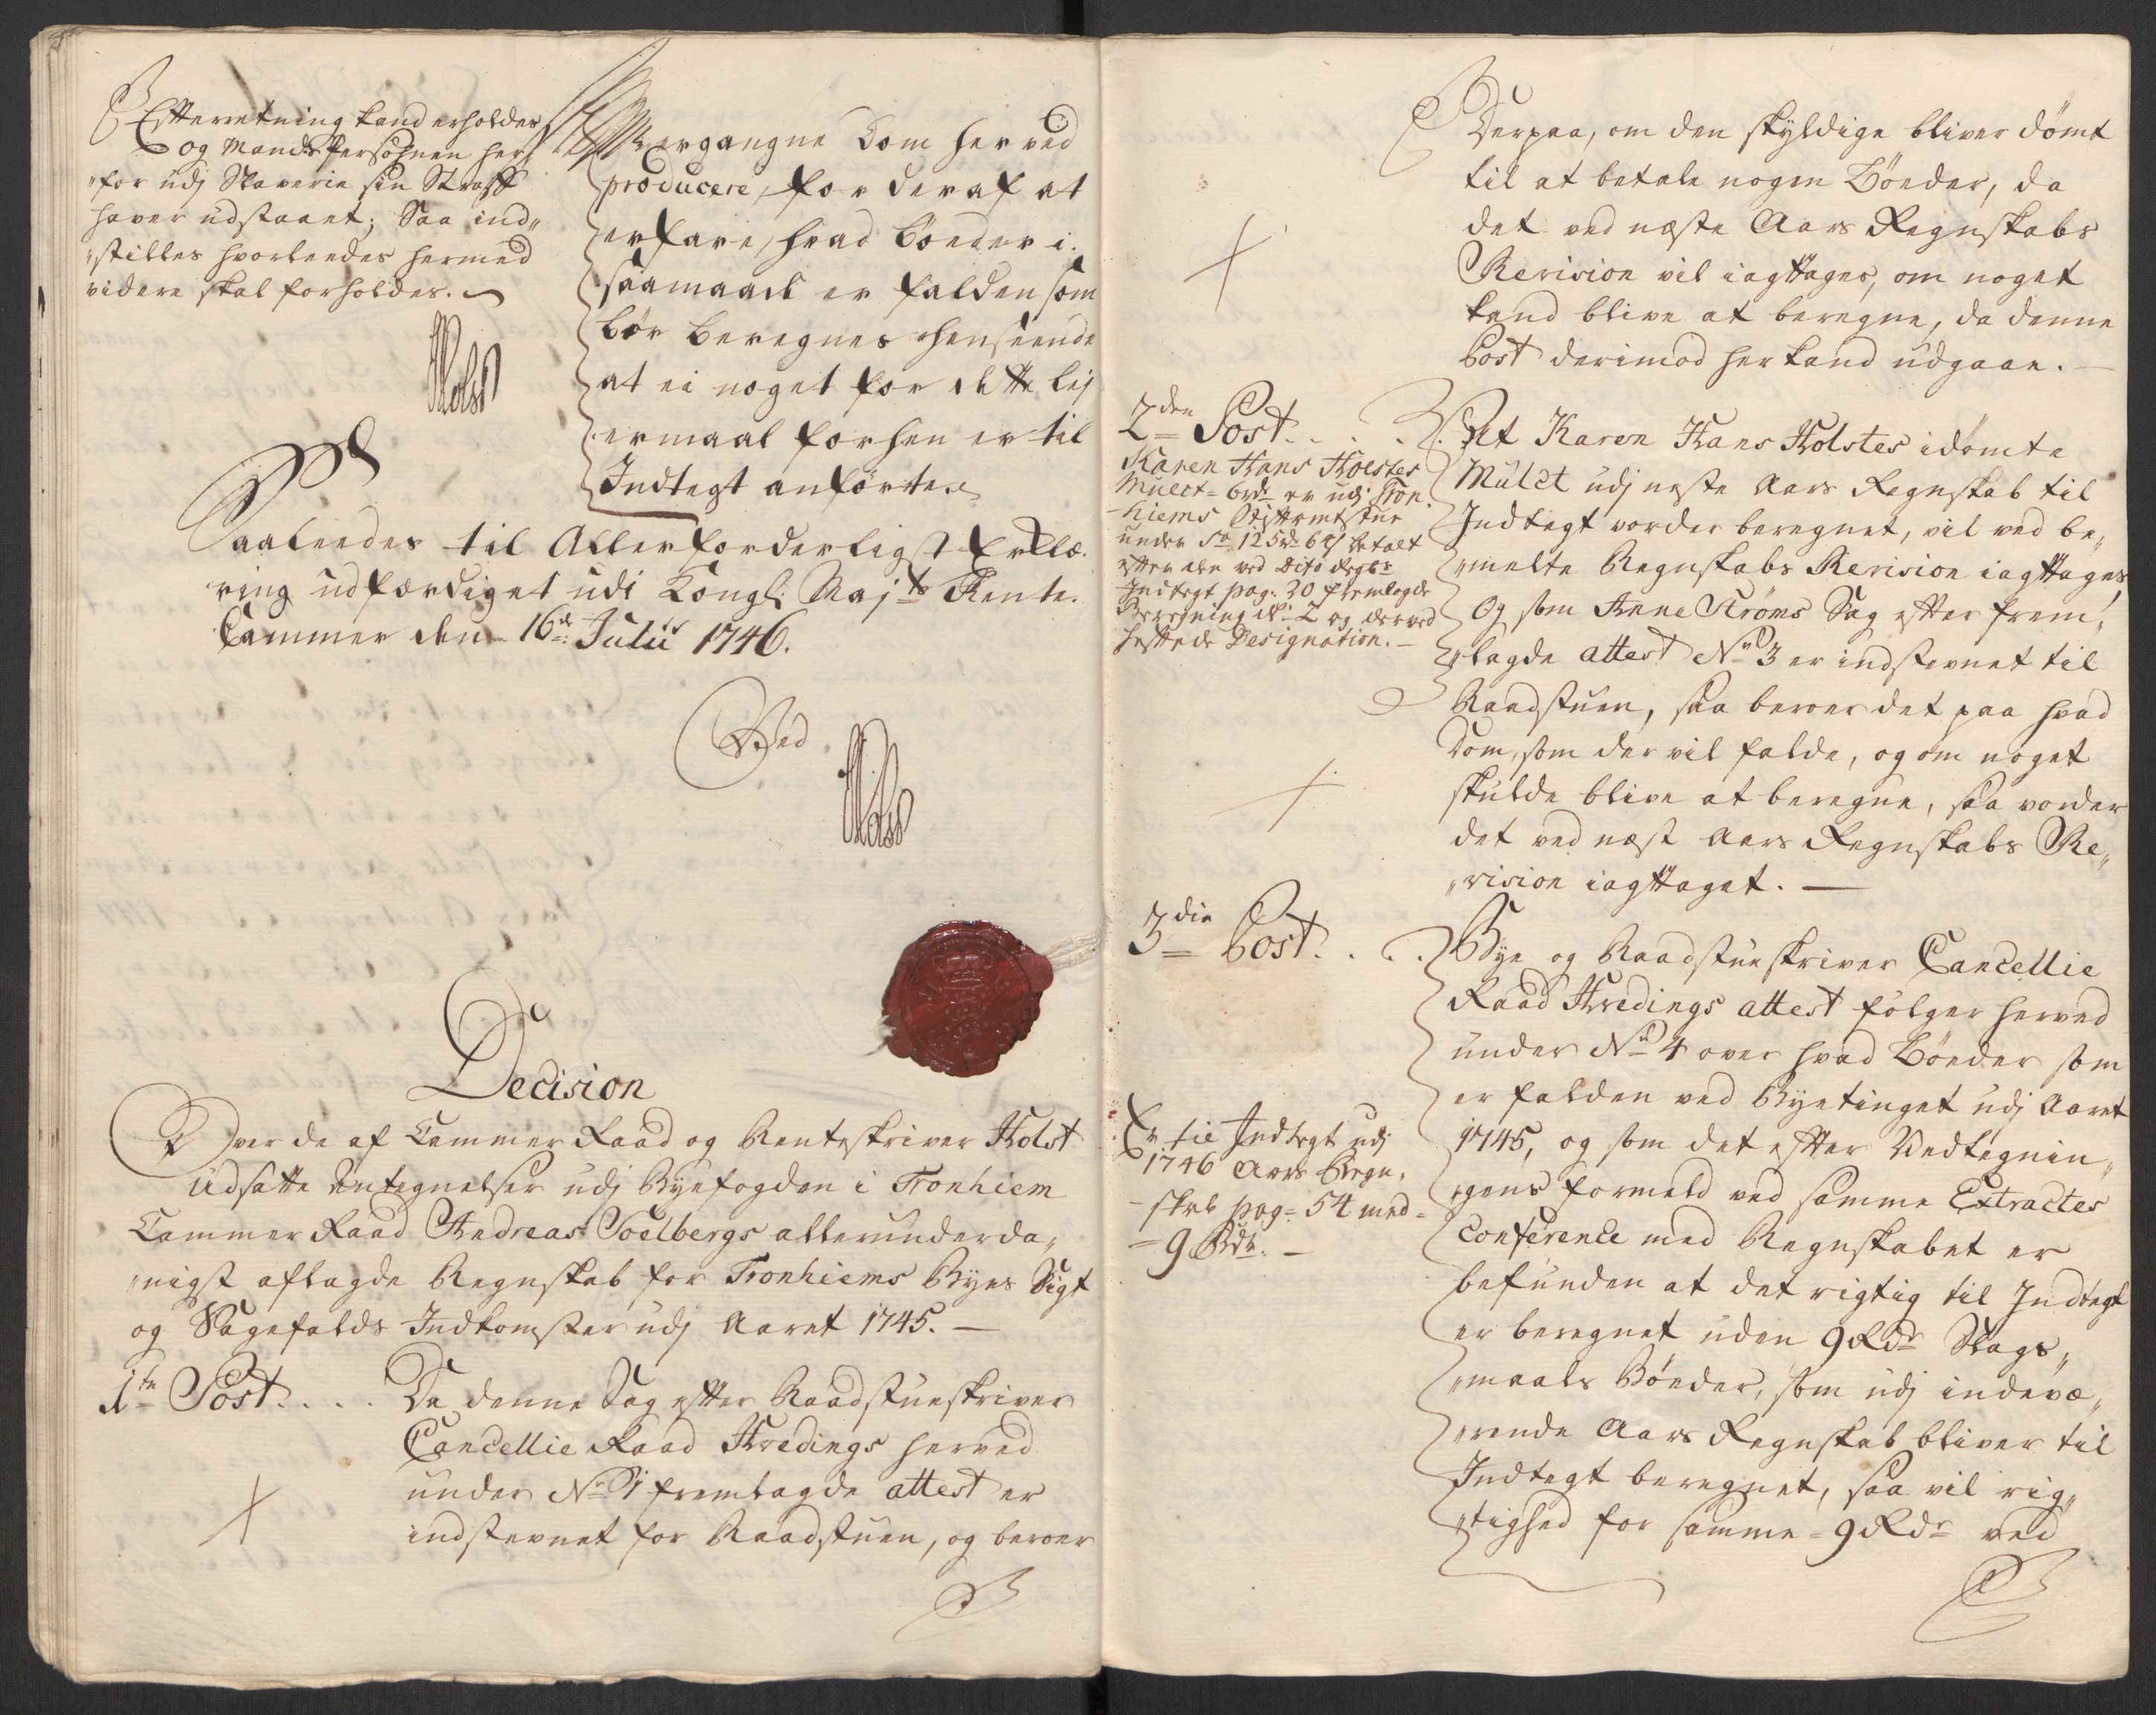 Efterretning kand erholdes,
og Mands Persohnen her
"for udj Slaverie sin Straff
haver udstaaet; Saa ind„
"stilles hvorleedes hermed
videre skal forholdes.
Holst
ergangne Dom herved
producere, for deraf at
erfare, hvad Bøeder i
saamaade er falden som
bør beregnes henseende
at ei noget for dette lej
ermaal forhen er til
Indtegt anførte.
Saaleedes til Allerforderligst Erklæ-
ring udfærdiget udi Kongl: Maj:ts Rente-
Cammer den 16de Julii 1746.
Ved
Holst
Decision
Over de af Cammer Raad og Renteskriver Holst
Udsatte Antegnelser udj Byefogden i Tronhiem
Cammer Raad Andreas Soelbergs allerunderda„
"nigst aflagde Regnskab for Tronhiems Byes Sigt
og Sagefalds Indkomster udj Aaret 1745. —
1te Post. . . .
Da denne Sag efter Raadstueskriver
Cancellie Raad Hvedings herved
under No 1 fremlagde attest er
indstevnet for Raadstuen, og beroer
Derpaa, om den skyldige bliver dømt
til at betale nogen Bøeder, da
det ved næste Aars Regnskabs
Revision vil iagttages, om noget
kand blive at beregne, da denne
Post derimod her kand udgaae. —
2den Post. . . .
Karen Hans Holstes
Mulct = 6rd er udj Tron-
hiems Stiftamtstue
under 125
efter den ved Dito Regns
Indtegt pag: 20 fremlagde
Beregning No 2 og derved
heftede Designation. —
At Karen Hans Holstes idømte
Mulct udj neste Aars Regnskab til
Indtegt vorder beregnet, vil ved be„
"melte Regnskabs Revision iagttages,
Og som Anne Strøms Sag efter frem„
"lagde attest No 3 er indstevnet til
Raadstuen, saa beroer det paa hvad
Dom, som der vil falde, og om noget
skulde blive at beregne, saa vorder
det ved næst Aars Regnskabs Re„
"vision iagttaget. —
3die Post. . . .
Er til Indtegt udj
1746 Aars Regn-
skab pag: 54 med
9 Rdr. —
Bye og Raadstueskriver Cancellie
Raad Hvedings attest følger herved
under No 4 over hvad Bøeder som
er falden ved Byetinget udj Aaret
1745, og som det efter Vedtegnin„
"gens formeld ved samme Extractes
Conference med Regnskabet er
befunden at det rigtig til Indtegt
er beregnet uden 9 Rdr Slags„
"maals Bøeder, som udj indevæ„
"rende Aars Regnskab bliver til
Indtegt beregnet, saa vil rig„
"tighed for samme 9 Rdr ved